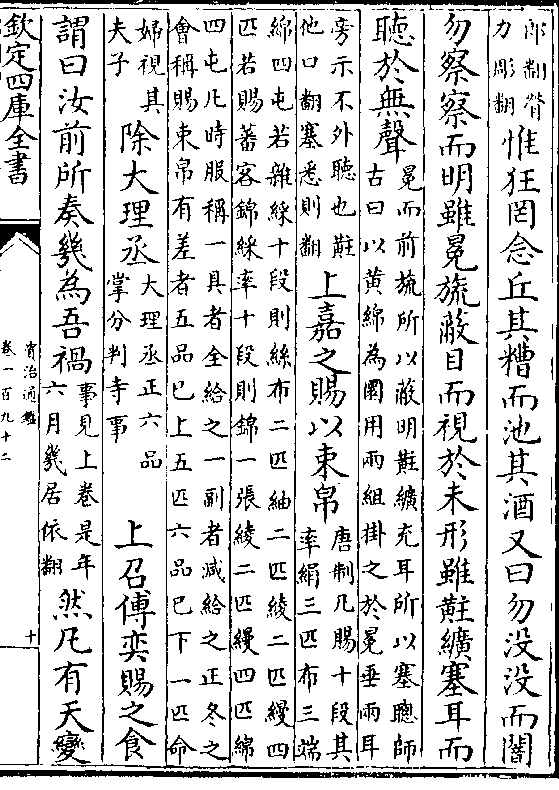 郎翻膋
力彫翻
惟狂罔念丘其糟而池其酒又曰勿没没而闇
勿察察而明雖冕旒蔽目而視於未形雖黈纊塞耳而
聽於無聲
冕而前旒所以蔽明黈纊充耳所以塞聰師
古曰以黄綿為圜用兩組掛之於冕垂兩耳
旁示不外聽也黈
他口翻塞悉則翻
上嘉之賜以束帛
唐制凡賜十段其
率絹三匹布三端
綿四屯若雜綵十段則絲布二匹紬二匹綾二匹縵四
匹若賜蕃客錦綵率十段則錦一張綾二匹縵四匹綿
四屯凡時服稱一具者全給之一副者減給之正冬之
會稱賜束帛有差者五品已上五匹六品已下一匹命
婦視其
夫子
除大理丞
大理丞正六品
掌分判寺事
上召傅奕賜之食
謂曰汝前所奏幾為吾禍
事見上卷是年
六月幾居依翻
然凡有天變
欽定四庫全書
資治通鑑
卷一百九十二
十